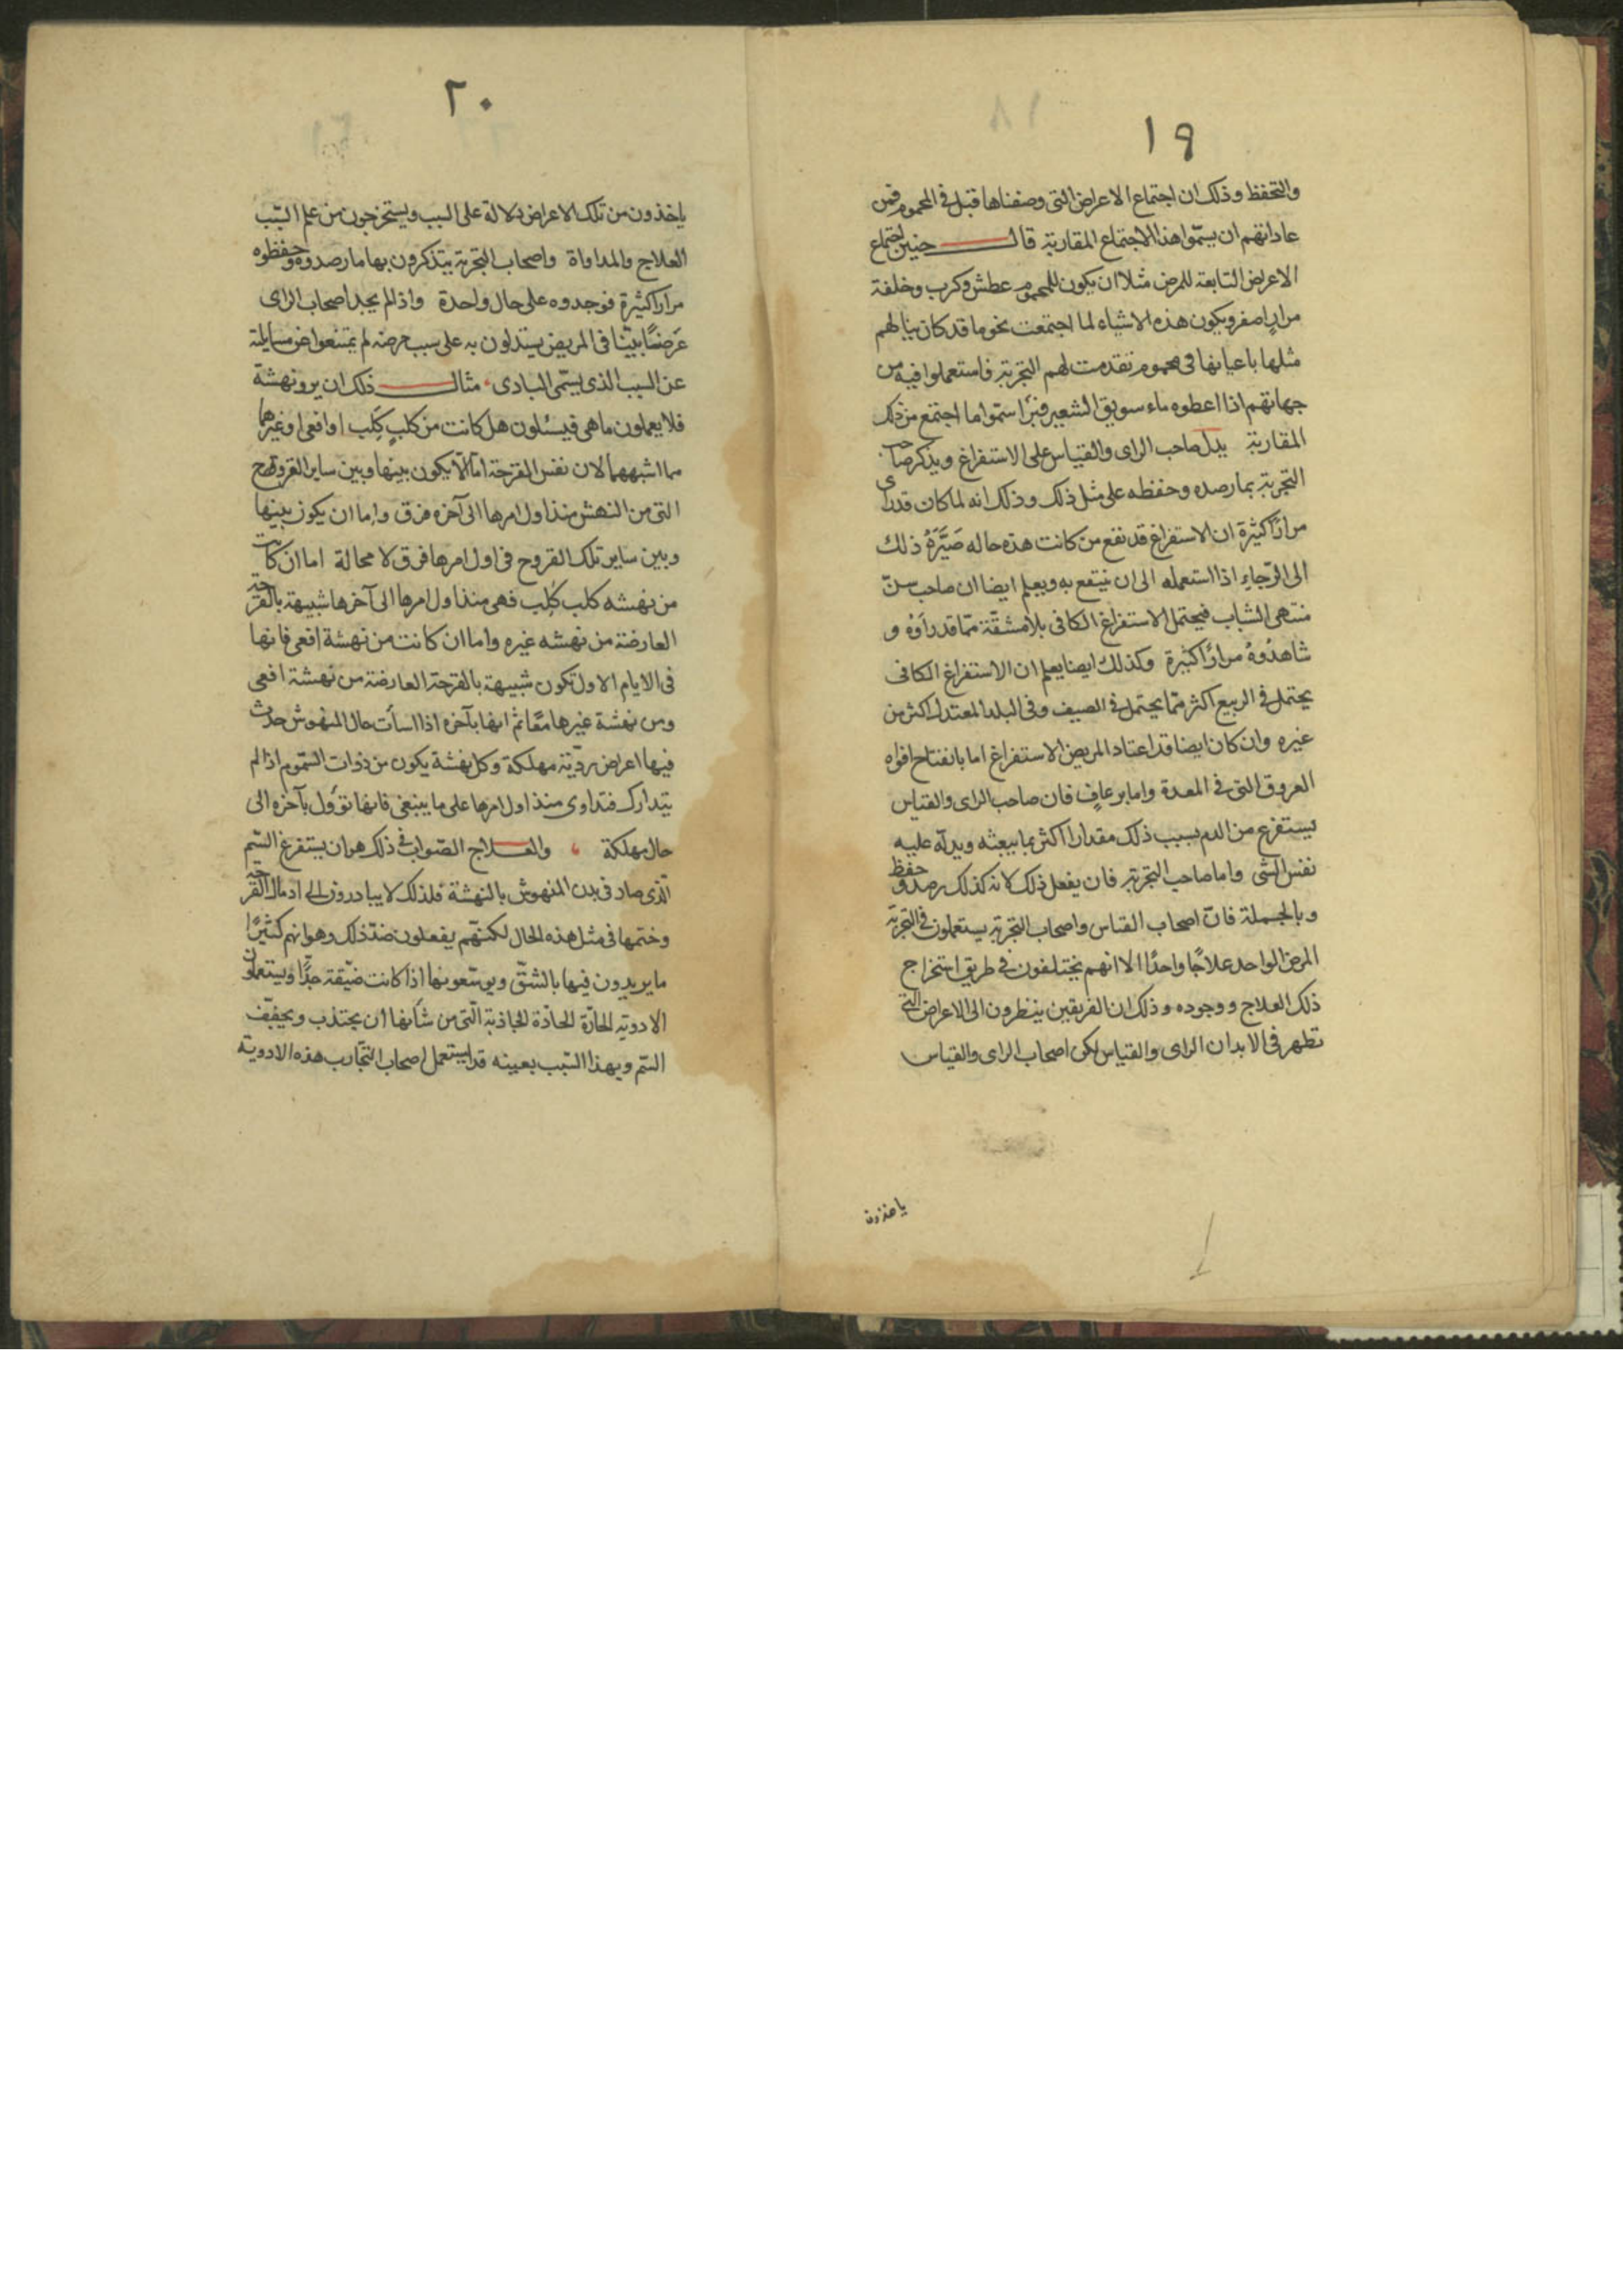 ١٩
والتحفظ وذلك ان اجتماع الاعراض التى وصفناها قبل فى المحموم فمن
عاداتهم ان يسمّوا هذا الاجتماع المقاربة قال حنين اجتماع
الاعراض التابعة للمرض مثلا ان يكون للمحموم عطش وكرب وخلفة
مرار اصفر ويكون هذه الاشياء لما اجتمعت نحو ما قد كان بينا لهم
مثلها باعيانها فى محموم تقدمت لهم التجربة فاستعملوا فيه من
جهاتهم اذا اعطوه ماء سويق الشعير فبرأ ستموا ما اجتمع من ذلك
المقاربة يدل صاحب الراى والقياس على الاستفراغ ويذكر صاحب
التجربة بما رصده وحفظه على مثل ذلك وذلك انه لما كان قد راى
مرارًا كثيرة ان الاستفراغ قد نفع من كانت هذه حاله صَيَّرَهُ ذلك
الى الرّجاءِ اذا استعمله الى ان ينتفع به ويعلم ايضا ان صاحب سنّ
منتهى الشباب فيحتمل الاستفراغ الكافى بلا مشقّة ممّا قد رَاَوْهُ و
شاهَدُوهُ مرارًا كثيرة وكذلك ايضا يعلم ان الاستفراغ الكافى
يحتمل فى الربيع اكثر ممّا يحتمل فى الصيف وفى البلد المعتدل اكثر من
غيره وان كان ايضا قد اعتاد المريض الاستفراغ اما بانفتاح افواه
العروق التى فى المعدة واما برعافٍ فان صاحب الراى والقياس
يستفرع من الدم بسبب ذلك مقدارا اكثر بما يبعثه ويدلّه عليه
نفس الشى واما صاحب التجربة فان يفعل ذلك لانه كذلك رصد وحفظ
وبالجملة فانّ اصحاب القياس واصحاب التجربة يستعملون فى التجربة
المرض الواحد علاجًا واحدًا الا انهم يختلفون فى طريق استخراج
ذلك العلاج ووجوده وذلك ان الفريقين ينظرون الى الاعراض التى
تظهر فى الابدان الراى والقياس لكن اصحاب الراى والقياس
ياخذون
٢٠
ياخذون من تلك الاعراض دلالة على السبب ويستخرجون من علم السّبب
العلاج والمداواة واصحاب التجربة يتذكرون بها ما رصدوه وحفظوه
مرارا كثيرة فوجدوه على حال واحدة واذا لم يجد اصحاب الراى
عَرضًا بيّنا فى المريض يستدلون به على سبب مرضه لم يمتنعوا من مسايلته
عن السبب الذى يسمّى البادى، مثال ذلك ان يرو نهشة
فلا يعلمون ما هى فيسئلون هل كانت من كلبٍ كَلِب او افعى او غيرهما
مما اشبههما لان نفس القرحة امّا الّا يكون بينها وبين ساير القروح
التى من النهش منذ اول امرها الى آخره فرق واما ان يكون بينها
وبين ساير تلك القروح فى اول امرها فرق لا محالة اما ان كانت
من نهشه كلب كَلِب فهى منذ اول امرها الى آخرها شبيهة بالقرحة
العارضة من نهشه غيره واما ان كانت من نهشة افعى فانها
فى الايام الاول تكون شبيهة بالقرحة العارضة من نهشة افعى
ومن نهشة غيرها معًا ثم انها بآخره اذا اسأت حال المنهوش حدث
فيها اعراض رديّة مهلكة وكل نهشة يكون من ذوات السّموم اذا لم
يتدارك فتداوى منذ اول امرها على ما ينبغى فانها تؤل بآخره الى
حال مهلكة ، والعلاج الصّواب فى ذلك هو ان يستفرغ السّم
الّذى صار فى بدن المنهوش بالنهشة فلذلك لا يبادرون الى ادمال القرحة
وختمها فى مثل هذه الحال لكنّهم يفعلون ضدّ ذلك وهو انهم كثيرًا
ما يريدون فيها بالشّقّ ويوسّعونها اذا كانت ضيّقة جدًّا ويستعملون
الادوية الحارّة الحادّة الجاذبة الّتى من شأنها ان يجتذب ويجفّف
السّم وبهذا السّبب بعينه قد يستعمل اصحاب التّجارب هذه الادوية